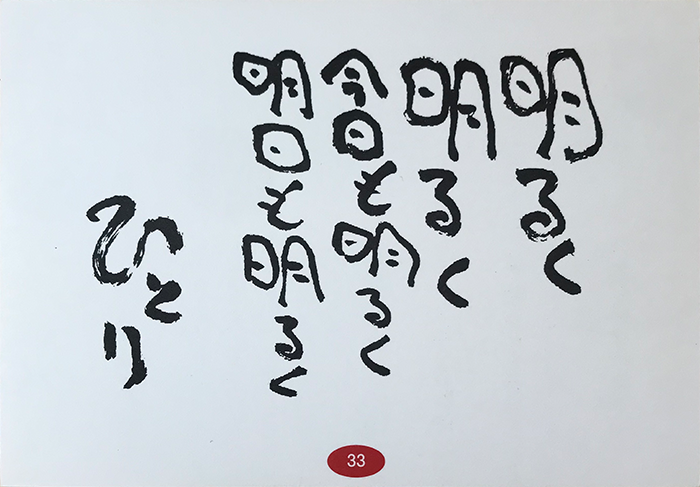 明るく
明るく
今日も明るく
明日も明るく
ひとり
33